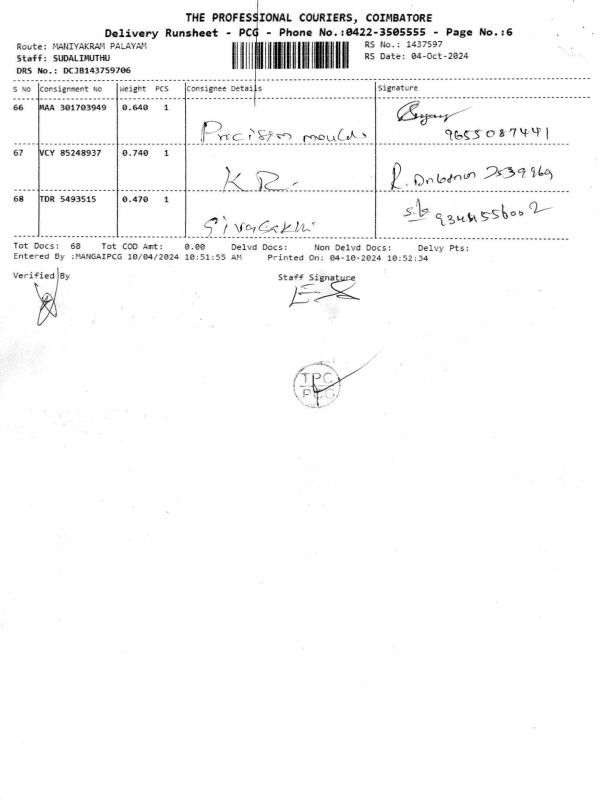 THE PROFESSIONAL COURIERS, COIMBATORE
Delivery Runsheet - PCG - Phone No.:0422-3505555 - Page No.:6
Route: MANIYAKRAM PALAYAM
RS No.: 1437597
Staff: SUDALIMUTHU
RS Date: 04-Oct-2024
DRS No.: DCJB143759706
S No Consignment No Weight PCS Consignee Details Signature
66 MAA 301703949 0.640 1
Precision moulds 9655087441
67 VCY 85248937 0.740 1
K R. R.
68 TDR 5493515 0.470 1
Sivasakhi
Tot Docs: 68 Tot COD Amt: 0.00 Delvd Docs: Non Delvd Docs: Delvy Pts:
Entered By :MANGAIPCG 10/04/2024 10:51:55 AM Printed On: 04-10-2024 10:52:34
Verified By Staff Signature
TPC
PCG